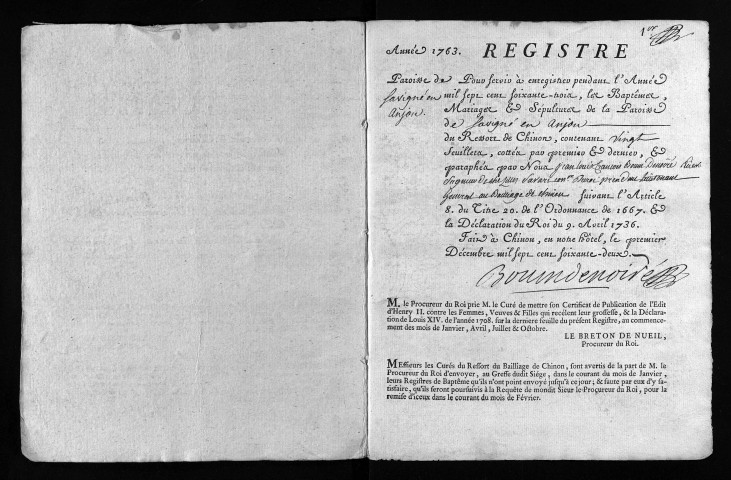 1er
Année 1763. REGISTRE
Paroisse de
Savigné en
Anjou.
Pour servir à enregistrer pendant l'Année
mil sept cent soixante-trois, les Baptêmes,
Mariages & Sépultures de la Paroisse
de Savigné en Anjou
du Ressort de Chinon, contenant vingt
feuillets, cottés par premier & dernier, &
paraphés par Nous Jean Louis François
Seigneur de
General au Bailliage de Chinon suivant l'Article
8. du Titre 20. de l'Ordonnance de 1667. &
la Déclaration du Roi du 9. Avril 1736.
Fait à Chinon, en notre hôtel, le premier
Décembre mil sept cent soixante-deux.
M. le Procureur du Roi prie M. le Curé de mettre son Certificat de Publication de l'Edit
d'Henry II. contre les Femmes, Veuves & Filles qui recélent leur grossesse, & la Déclara-
tion de Louis XIV. de l'année 1708. sur la derniere feuille du présent Registre, au commence-
ment des mois de Janvier, Avril, Juillet & Octobre.
LE BRETON DE NUEIL,
Procureur du Roi.
MEssieurs les Curés du Ressort du Bailliage de Chinon, sont avertis de la part de M. le
Procureur du Roi d'envoyer, au Greffe dudit Siége, dans le courant du mois de Janvier,
leurs Registres de Baptême qu'ils n'ont point envoyé jusqu'à ce jour; & faute par eux d'y sa-
tisfaire, qu'ils seront poursuivis à la Requête de mondit Sieur le Procureur du Roi, pour la
remise d'iceux dans le courant du mois de Février.